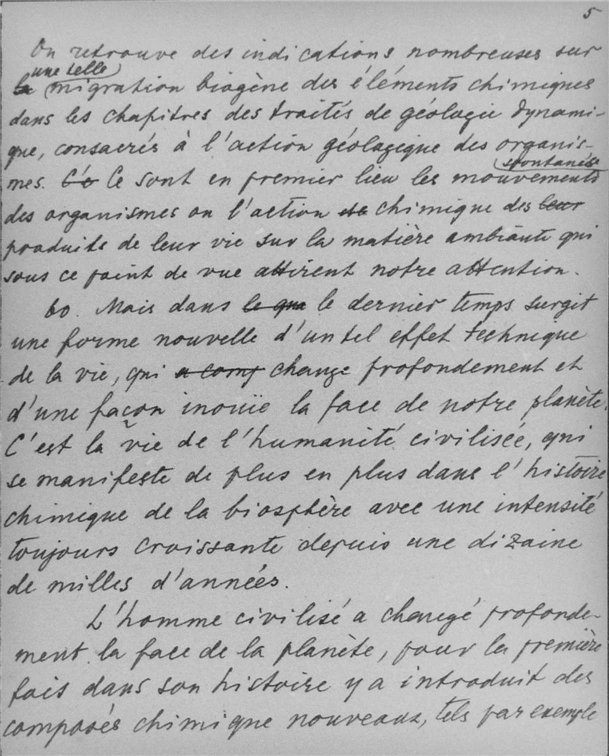 5
On retrouve des indications nombreuses sur
une telle
la migration biogène des éléments chimiques
dans les chapitres des traités de géologie dynami-
que, consacrés à l'action géologique des organis-
spontanés
mes. Ce Ce sont en premier lieu les mouvements
des organismes ou l'action de chimique des leur
produits de leur vie sur la matière ambiante qui
sous ce point de vue attirent notre attention.
60. Mais dans le que le dernier temps surgit
une forme nouvelle d'un tel effet technique
de la vie, qui a comp change profondement et
d'une façon inouïe la face de notre planète.
C'est la vie de l'humanité civilisée, qui
se manifeste de plus en plus dans l'histoire
chimique de la biosphère avec une intensité
toujours croissante depuis une dizaine
de milles d'années.
L'homme civilisé a changé profonde-
ment la face de la planète, pour la première
fois dans son histoire y a introduit des
composés chimique nouveaux, tels par exemple